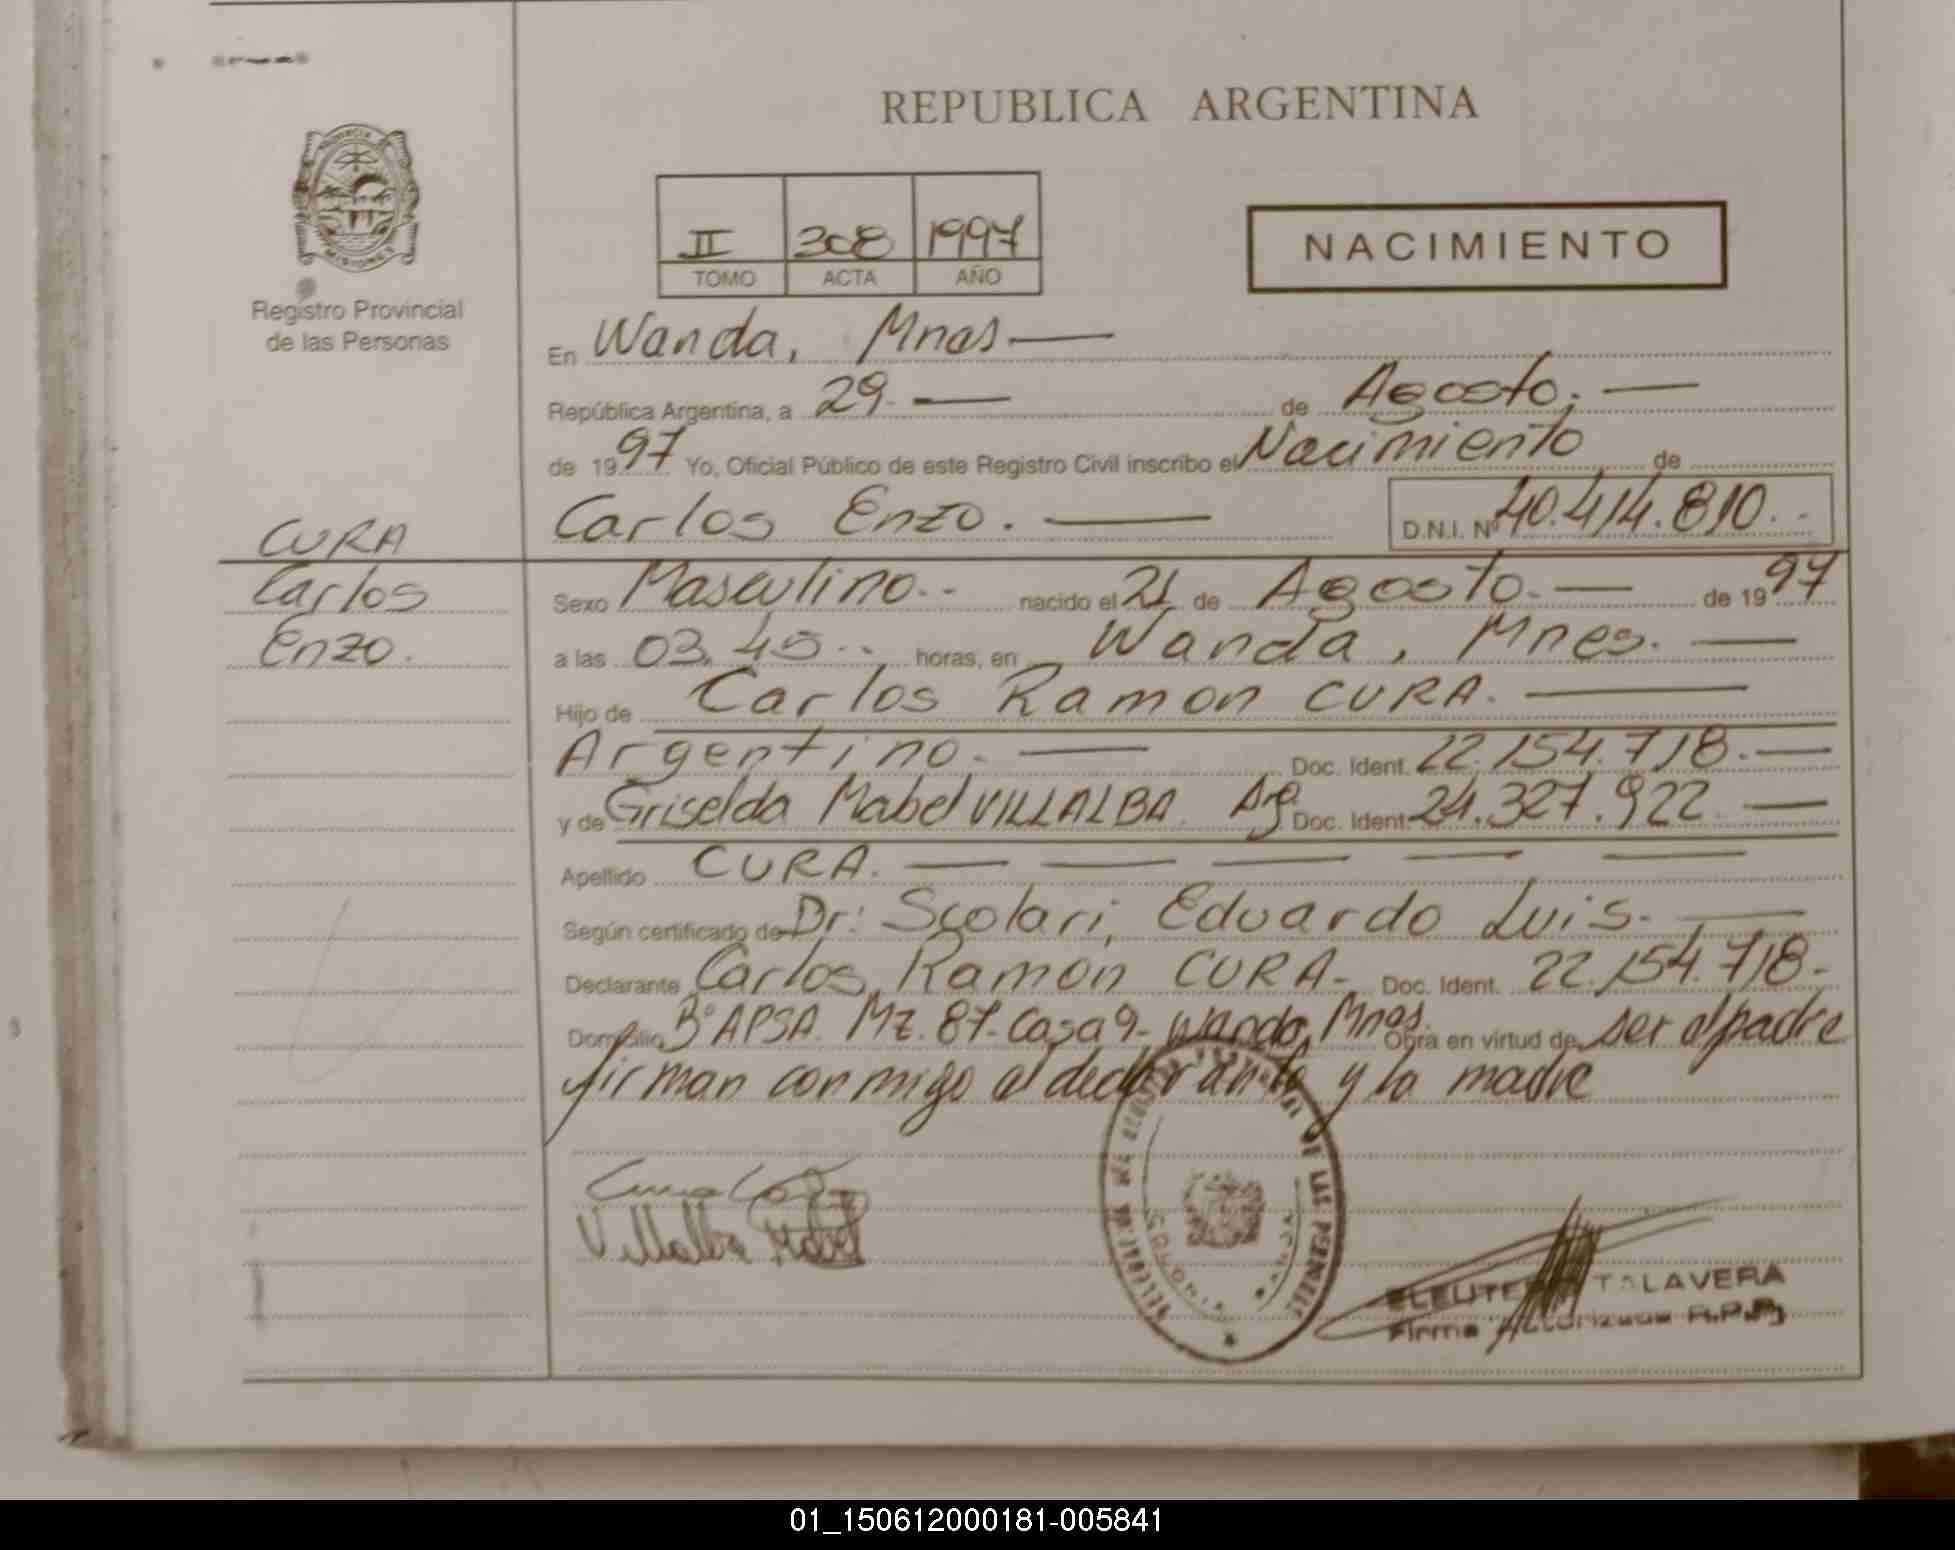 REPUBLICA ARGENTINA
II 308 1997
TOMO ACTA AÑO
NACIMIENTO
Registro Provincial
de las Personas
En Wanda, Mnes
República Argentina, a 29 de Agosto.
de 1997 Yo, Oficial Público de este Registro Civil inscribo el Nacimiento de
Carlos Enzo. D.N.I. Nº 40.414.810
CURA
Carlos
Enzo.
Sexo Masculino nacido el 21 de Agosto de 1997
a las 03,45 horas, en Wanda, Mnes.
Hijo de Carlos Ramon CURA.
Argentino. Doc. Ident. 22.154.718.
y de Griselda Mabel VILLALBA Arg Doc. Ident. 24.327.922
Apellido CURA.
Según certificado de Dr: Scolari, Eduardo Luis.
Declarante Carlos Ramon CURA- Doc. Ident. 22.154.718-
Domicilio Bº APSA. Mz. 87- Casa 9- Wanda, Mnes. Obra en virtud de ser el padre
firman conmigo el declarante y la madre
Villalba Mabel
DE LAS PERSONAS
COLONIA WANDA
ELEUTERIO TALAVERA
Firma Autorizada R.P.P.
01_150612000181-005841